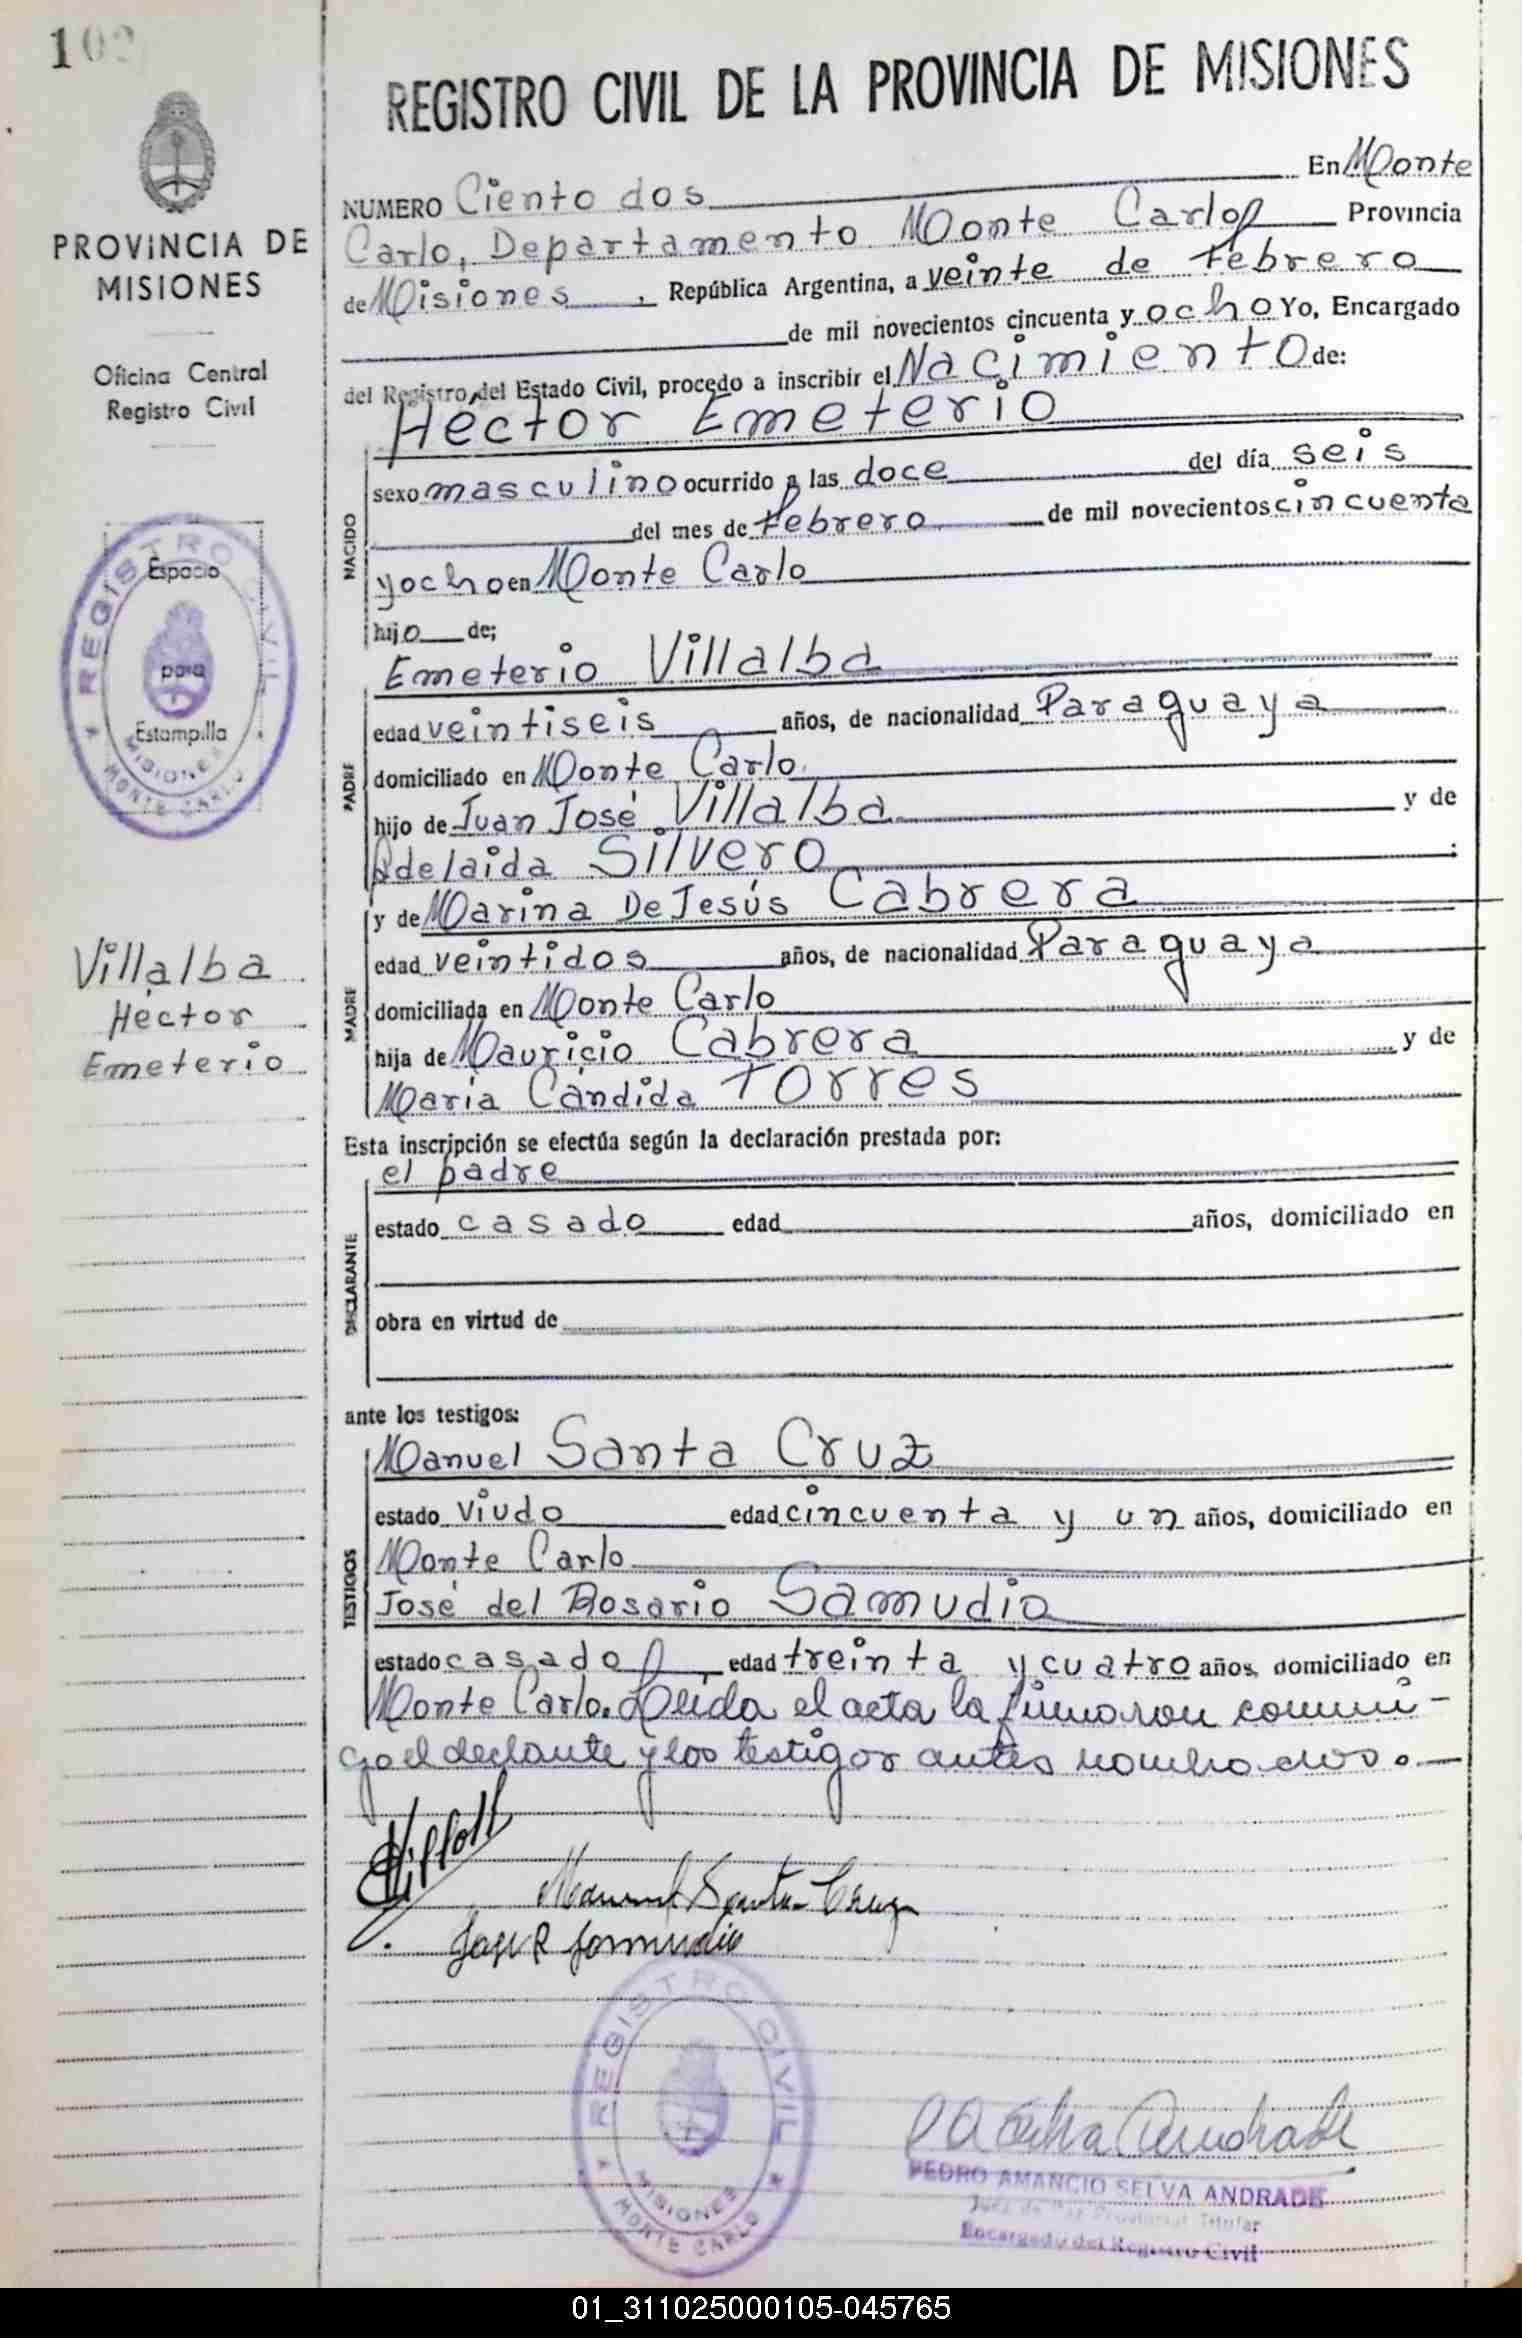 102
REGISTRO CIVIL DE LA PROVINCIA DE MISIONES
PROVINCIA DE
MISIONES
Oficina Central
Registro Civil
REGISTRO CIVIL
Espacio
para
Estampilla
MISIONES
MONTE CARLO
Villalba
Héctor
Emeterio
NUMERO Ciento dos En Monte
Carlo, Departamento Monte Carlo Provincia
de Misiones, República Argentina, a veinte de febrero
de mil novecientos cincuenta y ocho Yo, Encargado
del Registro del Estado Civil, procedo a inscribir el Nacimiento de:
Héctor Emeterio
NACIDO
sexo masculino ocurrido a las doce del día seis
del mes de febrero de mil novecientos cincuenta
y ocho en Monte Carlo
hijo de;
PADRE
Emeterio Villalba
edad veintiseis años, de nacionalidad Paraguaya
domiciliado en Monte Carlo
hijo de Juan José Villalba y de
Adelaida Silvero ;
MADRE
y de Marina De Jesús Cabrera
edad veintidos años, de nacionalidad Paraguaya
domiciliada en Monte Carlo
hija de Mauricio Cabrera y de
María Cándida Torres
Esta inscripción se efectúa según la declaración prestada por:
DECLARANTE
el padre
estado casado edad años, domiciliado en
obra en virtud de
ante los testigos:
TESTIGOS
Manuel Santa Cruz
estado viudo edad cincuenta y un años, domiciliado en
Monte Carlo
José del Rosario Samudio
estado casado, edad treinta y cuatro años, domiciliado en
Monte Carlo. Leída el acta la firmaron conmi-
go el declante y los testigos antes nombrados.
Manuel Santa Cruz
José R Samudio
REGISTRO CIVIL
MISIONES
MONTE CARLO
P A Selva Andrade
PEDRO AMANCIO SELVA ANDRADE
Juez de Paz Provincial Titular
Encargado del Registro Civil
01_311025000105-045765